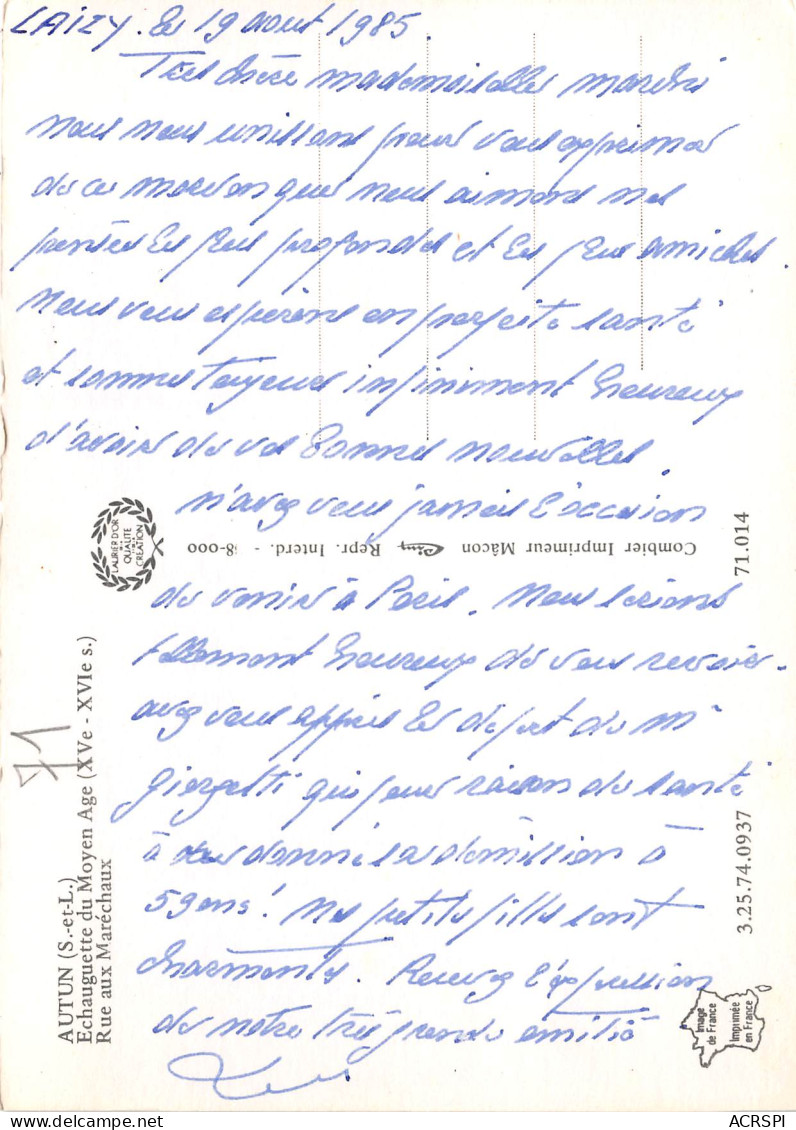 LAIZY. le 19 aout 1985.
Très chère mademoiselle
nous nous unissons pour vous exprimer
de ce morvan que nous aimons nos
pensées les plus profondes et les plus amicales
nous vous espérons en parfaite santé
et sommes toujours infiniment heureux
d'avoir de vos bonnes nouvelles.
n'avez vous jamais l'occasion
de venir à Paris. Nous serions
tellement heureux de vous revoir.
avez vous appris le départ de Mr
Giorgetti qui pour raison de santé
à donné sa démission à
59 ans! Nos petites filles sont
charmantes. Recevez l'expression
de notre très grande amitié
LAURIER D'OR
DE LA
QUALITÉ
CRÉATION
Combier Imprimeur Mâcon Cim Repr. Interd. - 38-000
71.014
71
AUTUN (S.-et-L.)
Echauguette du Moyen Age (XVe - XVIe s.)
Rue aux Maréchaux
3.25.74.0937
Image
de France
Imprimée
en France
ACRSPI